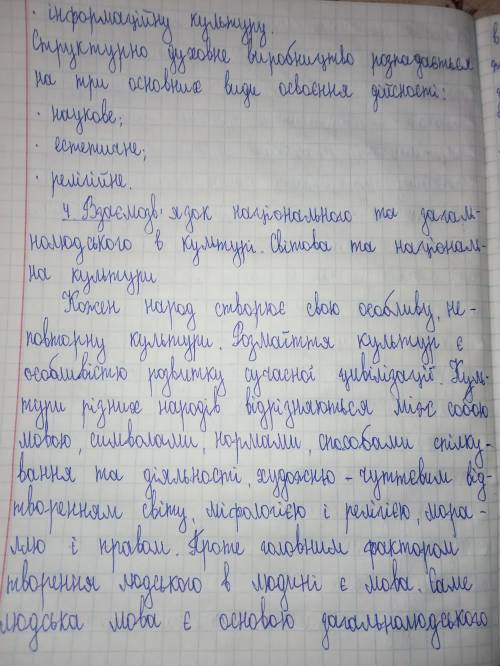 · інформаційну культуру.
Структурно духовне виробництво розпадається
на три основних види освоєння дійсності:
· наукове;
· естетичне;
· релігійне.
4 Взаємозв'язок національного та загаль-
нолюдського в культурі. Світова та національ-
на культури
Кожен народ створює свою особливу, не-
повторну культури. Розмаїття культур є
особливістю розвитку сучасної цивілізації. Куль-
тури різних народів відрізняються між собою
мовою, символами, нормами, способами спілку-
вання та діяльності, художньо-чуттєвим від-
творенням світу, міфологією і релігією, мора-
ллю і правом. Проте головним фактором
творення людського в людині є мова. Саме
людська мова є основою загальнолюдського